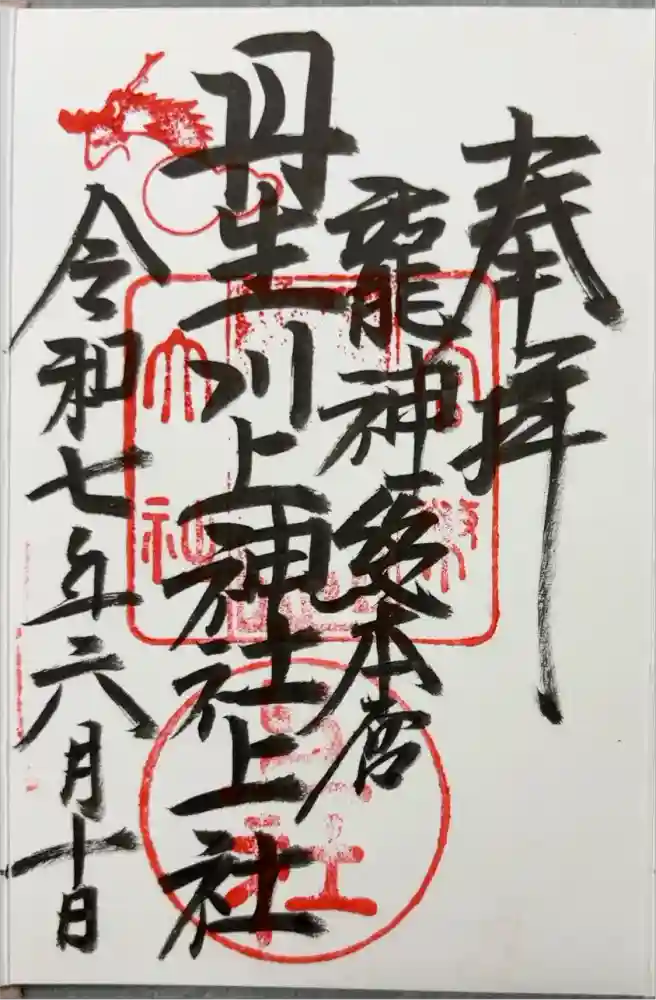 奉拝
龍神総本宮
丹生川上神社上社
令和七年六月十日
上社